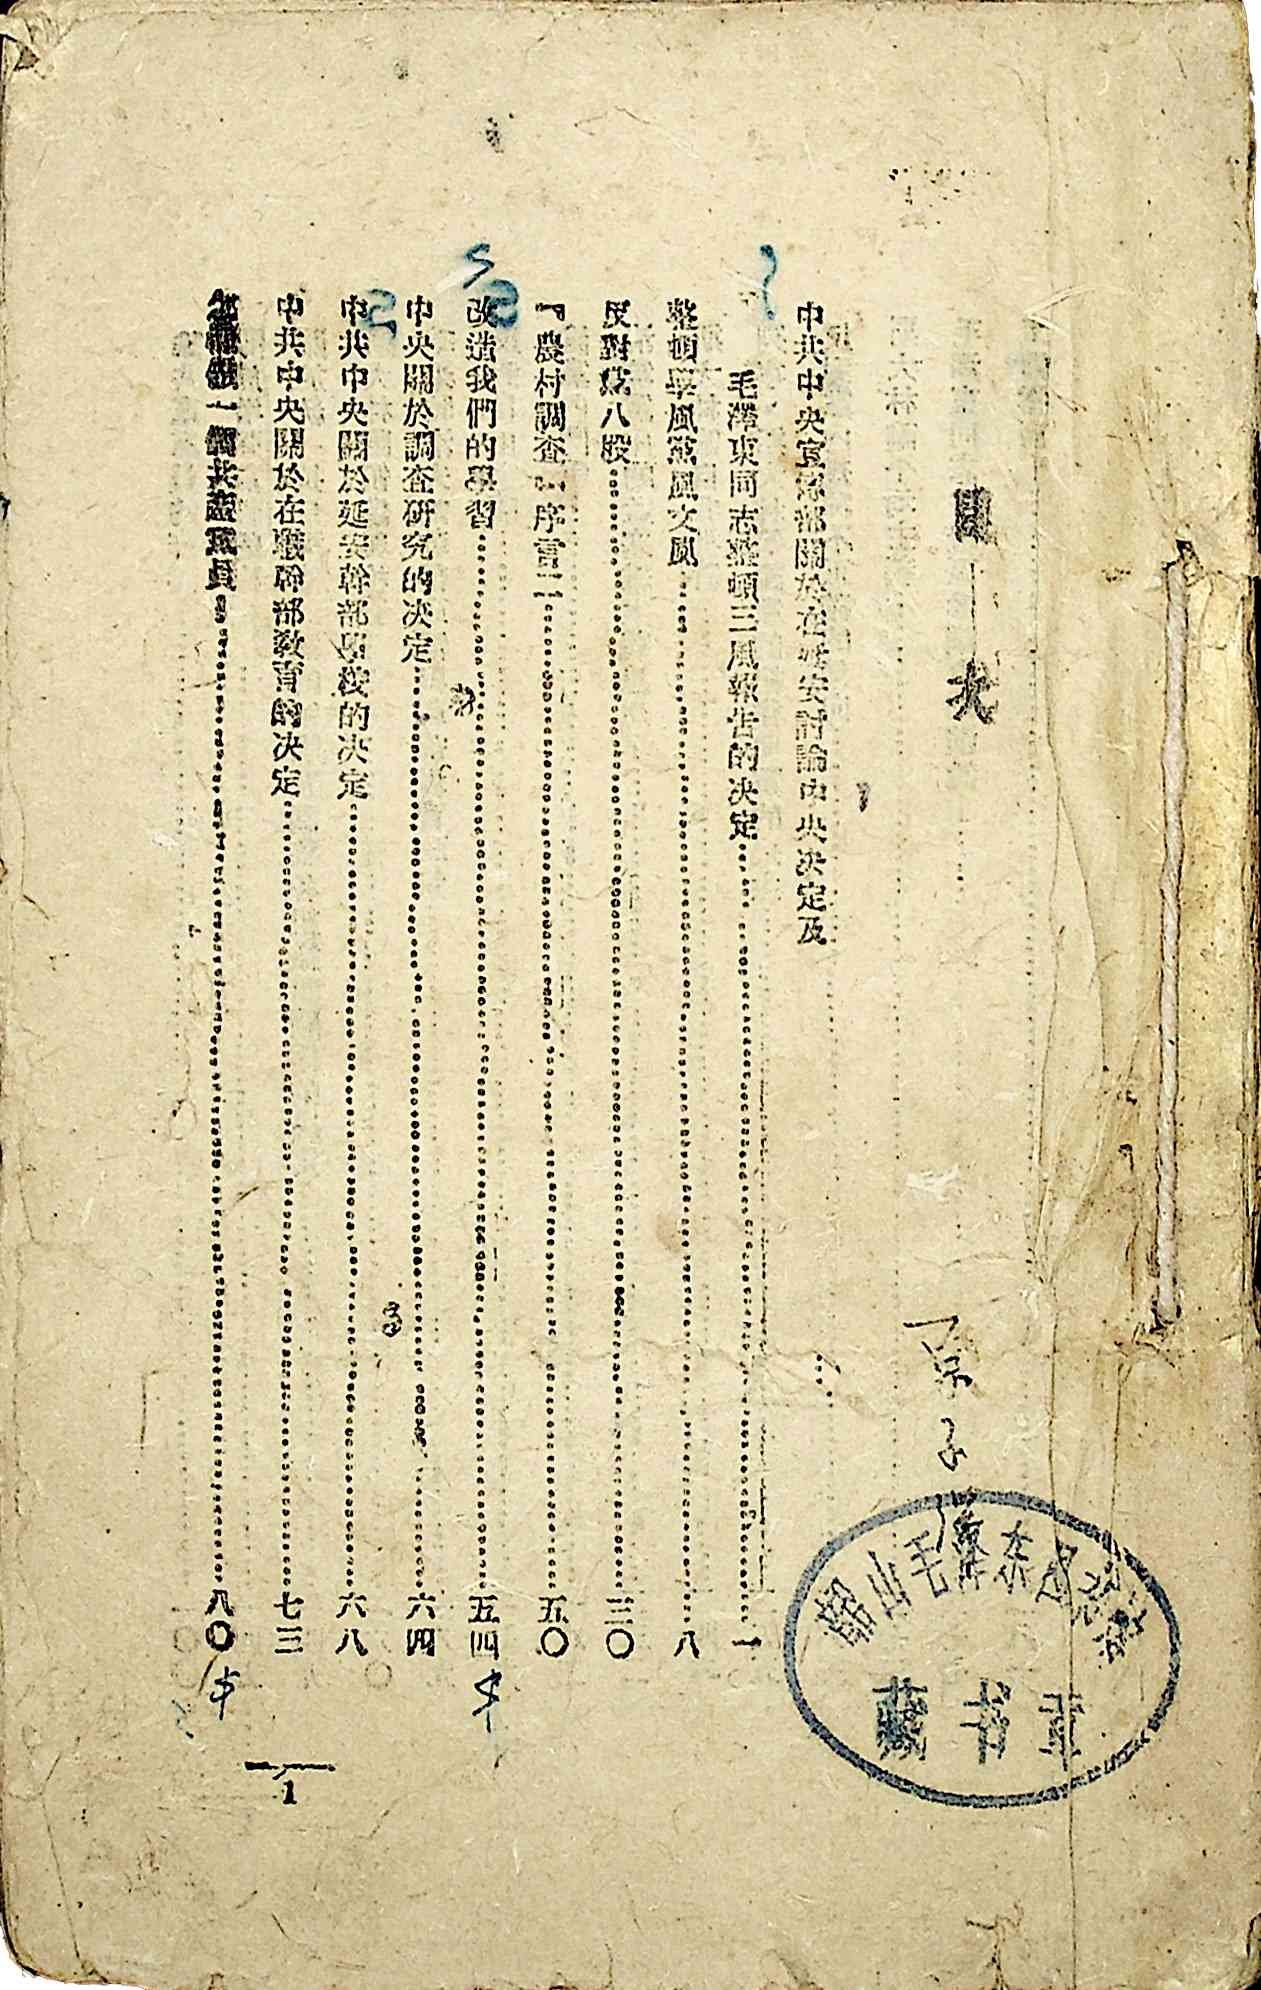 目次
中共中央宣傳部關於在延安討論中央決定及
毛澤東同志整頓三風報告的決定……一
整頓學風黨風文風……八
反對黨八股……三〇
「農村調查」序言二……五〇
改造我們的學習……五四
中央關於調查研究的決定……六四
中共中央關於延安幹部學校的決定……六八
中共中央關於在職幹部教育的決定……七三
怎樣做一個共產黨員……八〇
1
韶山毛泽东
藏书章